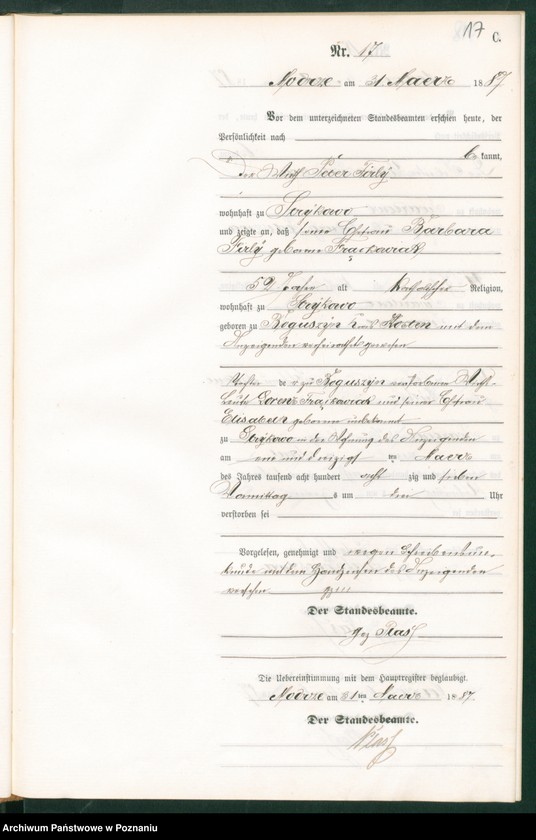 17 C.
Nr. 17
Modrze am 31 Maerz 1887
Vor dem unterzeichneten Standesbeamten erschien heute, der
Persönlichkeit nach
be kannt,
der Wirth Peter Firlÿ
wohnhaft zu Strÿkowo
und zeigte an, daß seine Ehefrau Barbara
Firlÿ geborene Frąckowiak
59 Jahre alt katholischer Religion,
wohnhaft zu Strÿkowo
geboren zu Boguszÿn Kreis Kosten mit dem
Anzeigenden verheirathet gewesen
Tochter der zu Boguszÿn verstorbenen Wirth
Leute Lorenz Frąckowiak und seiner Ehefrau
Elisabeth geborene unbekannt
zu Strÿkowo in der Wohnung des Anzeigenden
am ein und dreizigsten Maerz
des Jahres tausend acht hundert acht zig und sieben
Vormittag s um drei Uhr
verstorben sei
Vorgelesen, genehmigt und wegen Schreibensun-
kunde mit dem Handzeichen des Anzeigenden
versehn
Der Standesbeamte.
gez
Die Uebereinstimmung mit dem Hauptregister beglaubigt.
Modrze am 31 ten Maerz 1887.
Der Standesbeamte.
Archiwum Państwowe w Poznaniu